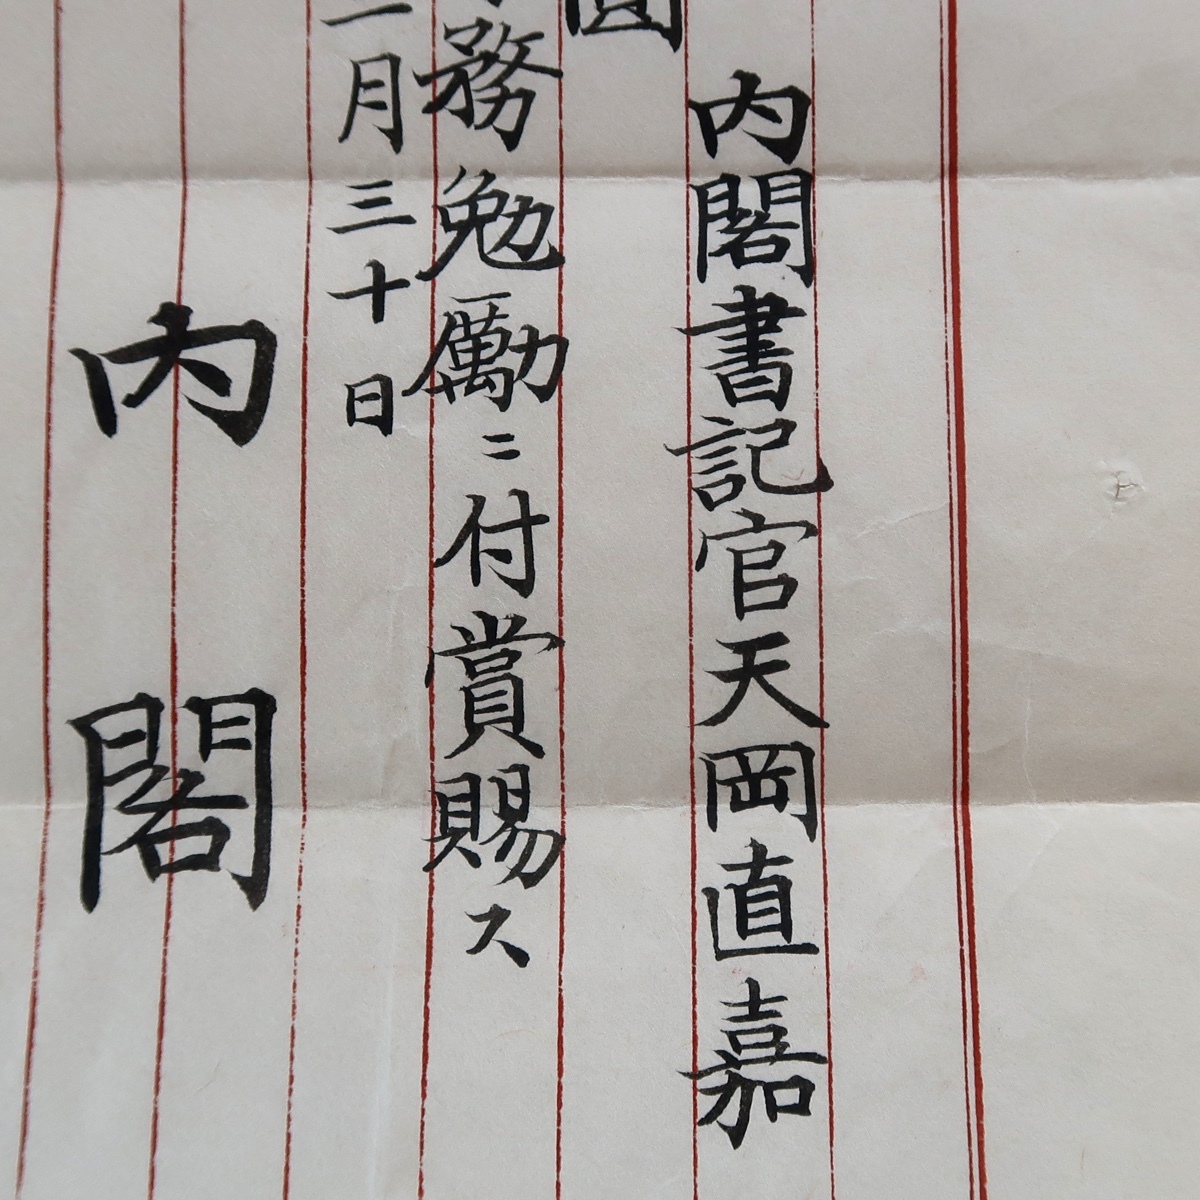 内閣書記官天岡直嘉
圓
務勉勵ニ付賞賜ス
月三十日
内閣